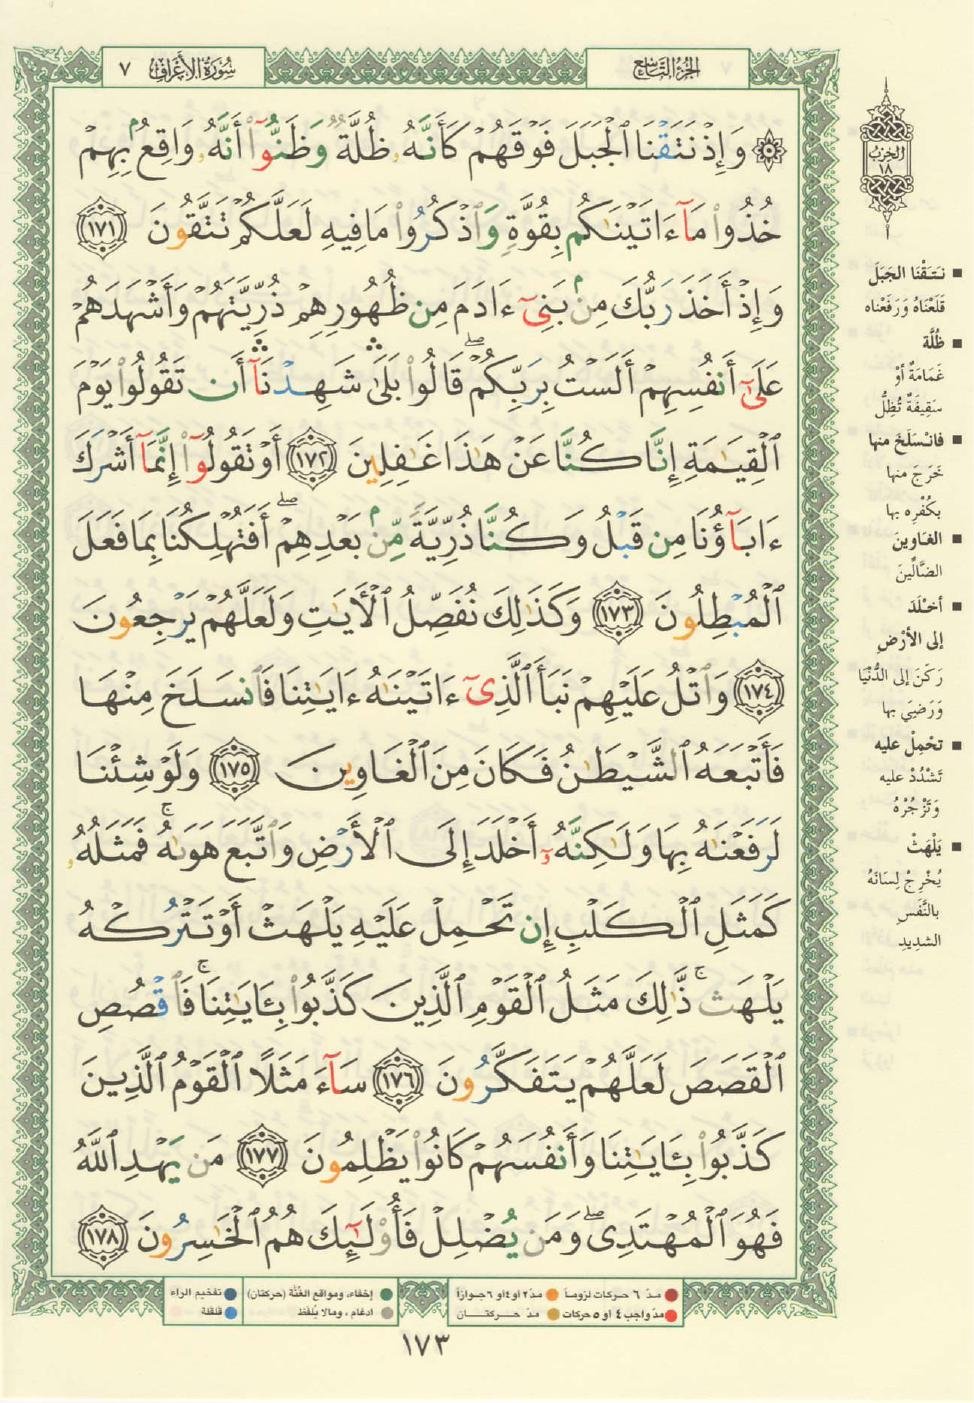 سورة الأعراف ٧
الجزء التاسع
۞ وَإِذْ نَتَقْنَا ٱلْجَبَلَ فَوْقَهُمْ كَأَنَّهُۥ ظُلَّةٌ وَظَنُّوٓا۟ أَنَّهُۥ وَاقِعٌۢ بِهِمْ
خُذُوا۟ مَآ ءَاتَيْنَـٰكُم بِقُوَّةٍ وَٱذْكُرُوا۟ مَا فِيهِ لَعَلَّكُمْ تَتَّقُونَ ١٧١
وَإِذْ أَخَذَ رَبُّكَ مِنۢ بَنِىٓ ءَادَمَ مِن ظُهُورِهِمْ ذُرِّيَّتَهُمْ وَأَشْهَدَهُمْ
عَلَىٰٓ أَنفُسِهِمْ أَلَسْتُ بِرَبِّكُمْ ۖ قَالُوا۟ بَلَىٰ ۛ شَهِدْنَآ ۛ أَن تَقُولُوا۟ يَوْمَ
ٱلْقِيَـٰمَةِ إِنَّا كُنَّا عَنْ هَـٰذَا غَـٰفِلِينَ ١٧٢ أَوْ تَقُولُوٓا۟ إِنَّمَآ أَشْرَكَ
ءَابَآؤُنَا مِن قَبْلُ وَكُنَّا ذُرِّيَّةً مِّنۢ بَعْدِهِمْ ۖ أَفَتُهْلِكُنَا بِمَا فَعَلَ
ٱلْمُبْطِلُونَ ١٧٣ وَكَذَٰلِكَ نُفَصِّلُ ٱلْـَٔايَـٰتِ وَلَعَلَّهُمْ يَرْجِعُونَ
١٧٤ وَٱتْلُ عَلَيْهِمْ نَبَأَ ٱلَّذِىٓ ءَاتَيْنَـٰهُ ءَايَـٰتِنَا فَٱنسَلَخَ مِنْهَا
فَأَتْبَعَهُ ٱلشَّيْطَـٰنُ فَكَانَ مِنَ ٱلْغَاوِينَ ١٧٥ وَلَوْ شِئْنَا
لَرَفَعْنَـٰهُ بِهَا وَلَـٰكِنَّهُۥٓ أَخْلَدَ إِلَى ٱلْأَرْضِ وَٱتَّبَعَ هَوَىٰهُ ۚ فَمَثَلُهُۥ
كَمَثَلِ ٱلْكَلْبِ إِن تَحْمِلْ عَلَيْهِ يَلْهَثْ أَوْ تَتْرُكْهُ
يَلْهَث ۚ ذَّٰلِكَ مَثَلُ ٱلْقَوْمِ ٱلَّذِينَ كَذَّبُوا۟ بِـَٔايَـٰتِنَا ۚ فَٱقْصُصِ
ٱلْقَصَصَ لَعَلَّهُمْ يَتَفَكَّرُونَ ١٧٦ سَآءَ مَثَلًا ٱلْقَوْمُ ٱلَّذِينَ
كَذَّبُوا۟ بِـَٔايَـٰتِنَا وَأَنفُسَهُمْ كَانُوا۟ يَظْلِمُونَ ١٧٧ مَن يَهْدِ ٱللَّهُ
فَهُوَ ٱلْمُهْتَدِى ۖ وَمَن يُضْلِلْ فَأُو۟لَـٰٓئِكَ هُمُ ٱلْخَـٰسِرُونَ ١٧٨
الحزب
١٨
■ نَتَقْنَا الجَبَلَ
قَلَعْنَاهُ وَرَفَعْنَاه
■ ظُلَّة
غَمَامَةٌ أوْ
سَقِيفَةٌ تُظِلُّ
■ فانسَلَخَ منها
خَرَجَ منها
بِكُفْرِه بها
■ الغَاوِينَ
الضَّالِّينَ
■ أخلَدَ
إلى الأرْضِ
رَكَنَ إلى الدُّنْيَا
وَرَضِيَ بها
■ تَحْمِلْ عليه
تَشْدُدْ عليه
وَتَزْجُرْهُ
■ يَلْهَثْ
يُخْرِجْ لِسَانَهُ
بالنَّفَسِ
الشديدِ
مدّ ٦ حركات لزوماً مدّ ٢ أو ٤ أو ٦ جوازاً
مدّ واجب ٤ أو ٥ حركات مدّ حركتان
إخفاء، ومواقع الغُنَّة (حركتان)
ادغام، ومالا يُلفظ
تفخيم الراء
قلقلة
١٧٣